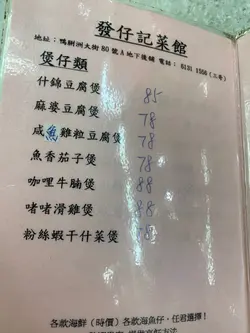 發仔記菜館
地址：鴨脷洲大街80號A地下後舖 電話：6131 1556（三哥）
煲仔類
什錦豆腐煲 85
麻婆豆腐煲 78
咸魚雞粒豆腐煲 78
魚香茄子煲 78
咖哩牛腩煲 88
啫啫滑雞煲 88
粉絲蝦干什菜煲 78
各款海鮮（時價）各款海魚仔，任君選擇！